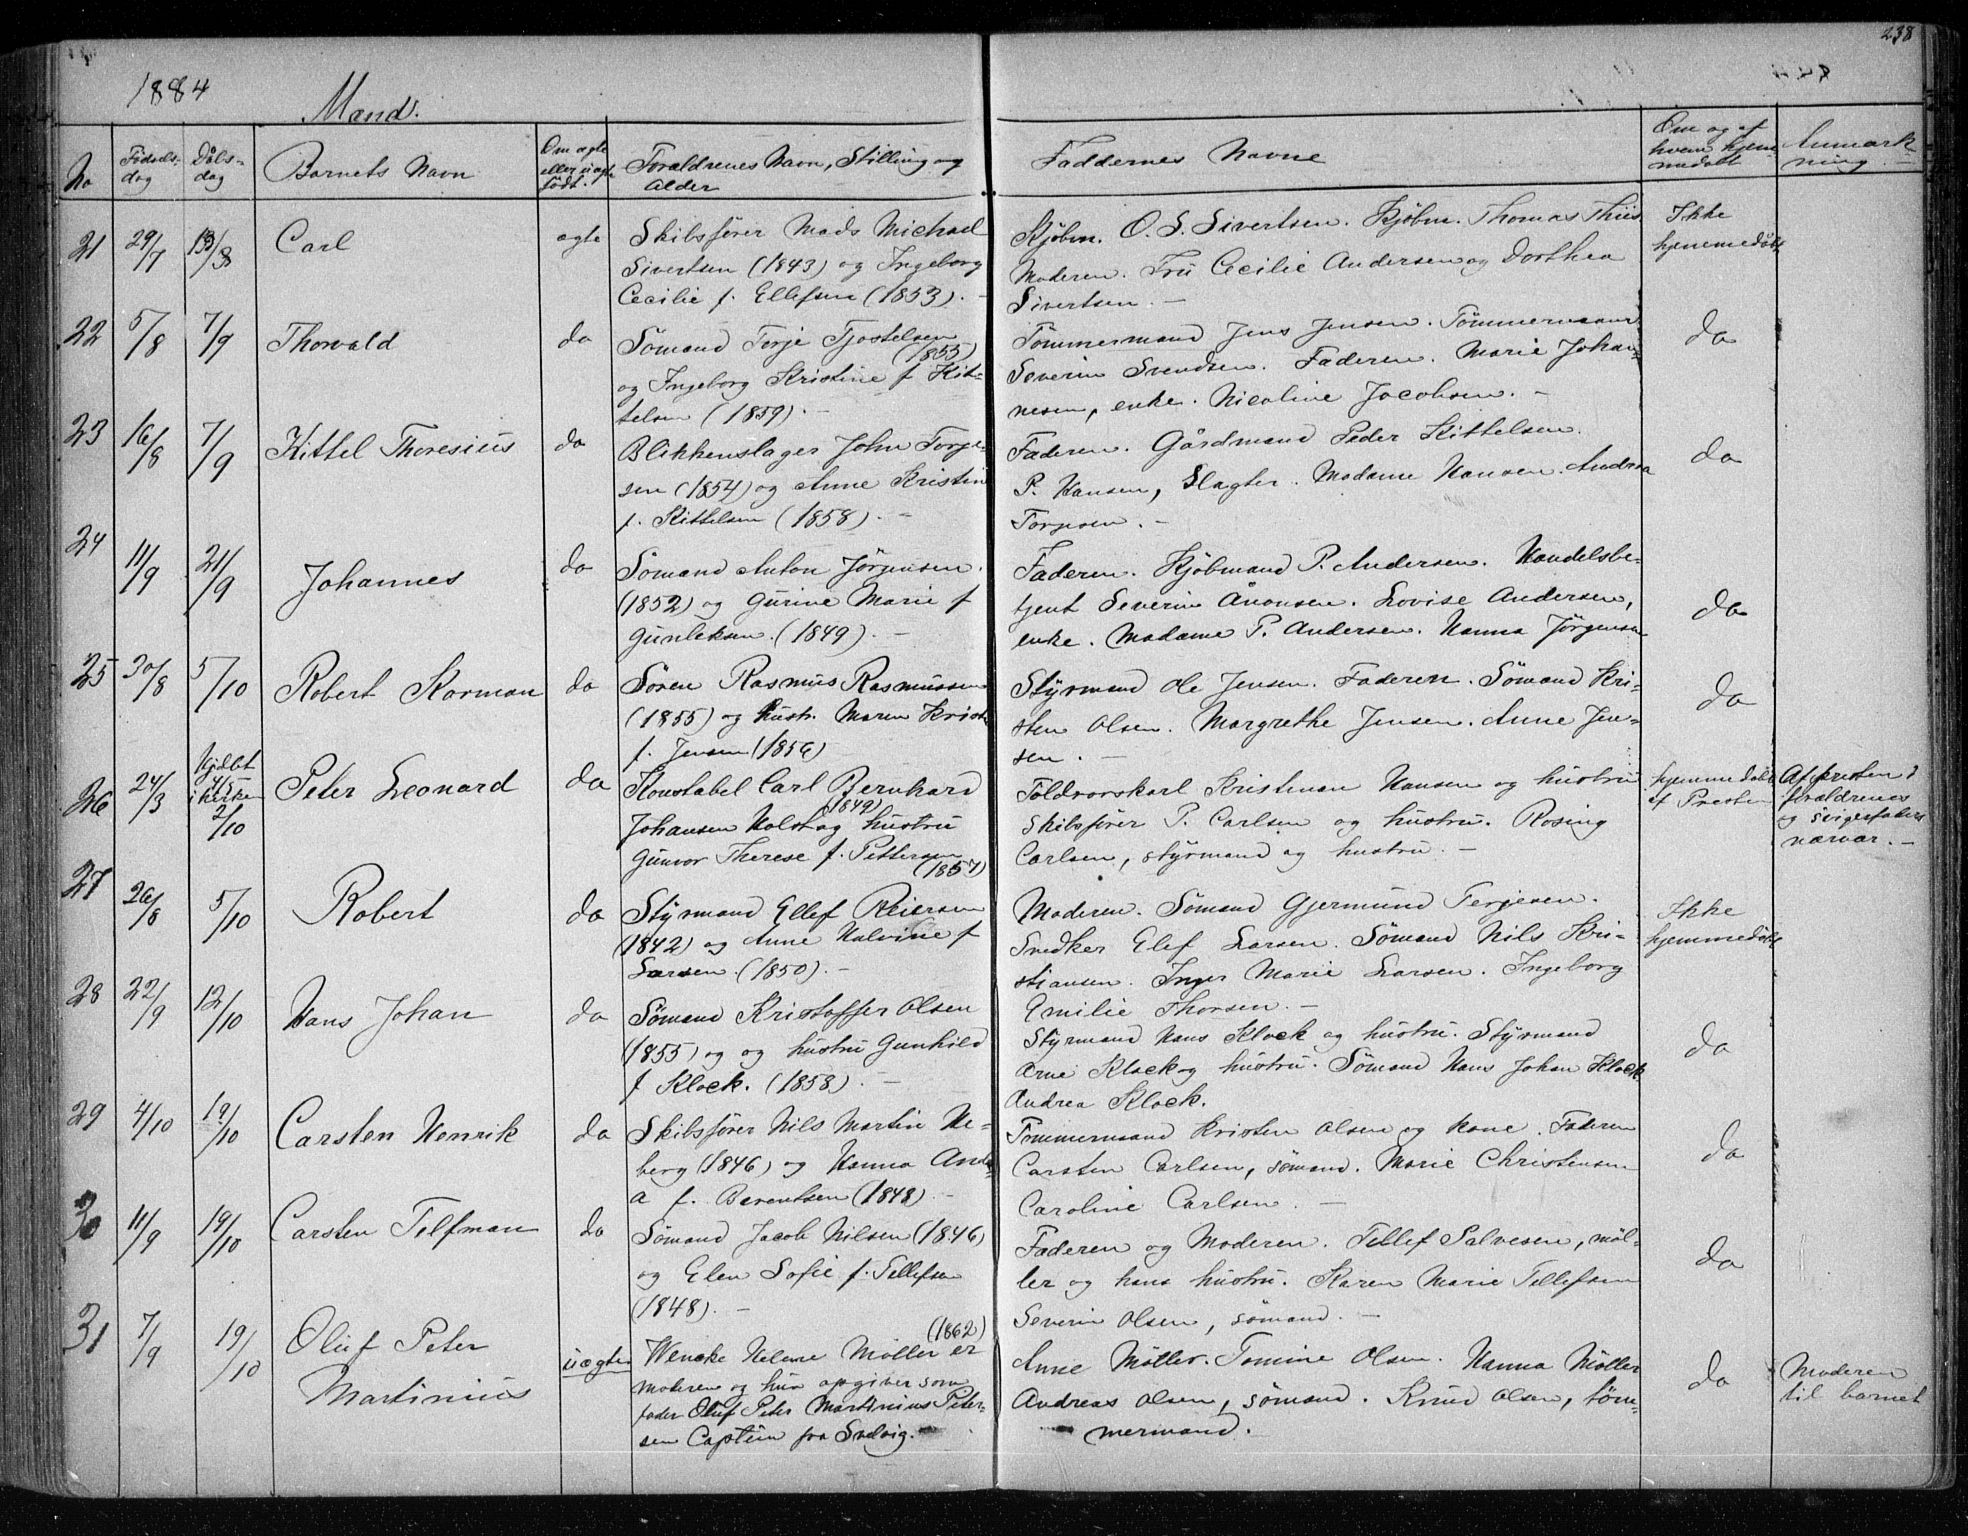 238
1884
Mænd.
No
Födsels-
dag
Dåbs-
dag
Barnets Navn
Om ægte
eller uægte
født.
Forældrenes Navn, Stilling og
Alder
Faddernes Navne
Om og af
hvem hjem-
medøbt
Anmærk-
ning.
21 29/7 Carl ægte
Skibsfører Mads Michael
Sivertsen (1843) og Ingeborg
Cecilie f. Ellefsen (1853). -
Kjöbm. O. S. Sivertsen. Kjöbm. Thomas Thiis
Moderen. Frü Cecilie Andersen og Dorthea
Sivertsen. -
Ikke
hjemmedöbt
22 5/8 7/9 Thorvald do
Sömand Terje Tjostelsen
(1855)
og Ingeborg Kristine f Kit-
telsen (1859). -
Tömmermand Jens Jensen. Tömmermand
Severin Svendsen. Faderen. Marie Johan-
nesen, enke. Nicoline Jacobsen. -
do
23 16/8 7/9 Kittel Thoresius do
Blikkenslager John Torge-
sen (1854) og Anne Kristin
f. Kittelsen (1858). -
Faderen. Gårdmand Peder Kittelsen.
P. Hansen, Slagter. Madame Hansen. Andrea
Torgesen. -
do
24 11/9 21/9 Johannes do
Sömand Anton Jörgensen.
(1852) og Gurine Marie f
Gunleksen. (1849). -
Faderen. Kjöbmand P. Andersen. Handelsbe-
tjent Severin Ånonsen. Lovise Andersen,
enke. Madame P. Andersen. Hanna Jörgensen
do
25 30/8 5/10 Robert Korman do
Sören Rasmus Rasmussen
(1855) og hustr. Maren Krist
f. Jensen (1856)
Styrmand Ole Jensen. Faderen. Sömand Kri-
sten Olsen. Margrethe Jensen. Anne Jen-
sen. -
do
26 24/3 Hjdbt
4/5
i kirken
2/10
Peter Leonard do
Konstabel Carl Bernhard
(1849)
Johansen Holst og hustru
Gunvor Therese f. Pettersen
(1857)
Toldrorskarl Kristman Hansen og hustru
Skibsfører P. Carlsen og hustru. Rosing
Carlsen, styrmand og hustru. -
hjemmedöbt
af Presten
Af presten i
forældrenes
og svigerfaders
nærvær. -
27 26/8 5/10 Robert do
Styrmand Ellef Reiersen
(1842) og Anne Halvine f
Larsen. (1850). -
Moderen. Sömand Gjermund Terjesen.
Snedker Elef Larsen. Sömand Nils Kri-
stiansen. Inger Marie Larsen. Ingeborg
Emilie Thorsen. -
Ikke
hjemmedöbt
28 22/9 12/10 Hans Johan do
Sömand Kristoffer Olsen
(1855) og og hustru Gunhild
f Klock. (1858). -
Styrmand Hans Klock og hustru. Styrmand
Arne Klock og hustru. Sömand Hans Johan Klock
Andrea Klock.
do
29 4/10 19/10 Carsten Henrik do
Skibsfører Nils Martin He-
berg (1846) og Hanna Andre
a f. Berentsen (1848). -
Tömmermand Kristen Olsen og kone. Faderen
Carsten Carlsen, sömand. Marie Christensen
Caroline Carlsen. -
do
30 11/9 19/10 Carsten Telfman do
Sömand Jacob Nilsen (1846)
og Elen Sofie f. Tellefsen
(1848). -
Faderen og Moderen. Tellef Salvesen, möl-
ler og hans hustru. Karen Marie Tellefsen
Severin Olsen, sömand. -
do
31 7/9 19/10 Oluf Peter
Martinius
uægte
(1862)
Wencke Helene Møller er
moderen og hun opgiver som
fader Oluf Peter Martinius Peter-
sen Captein fra Svelvig.
Anne Möller. Tomine Olsen. Hanna Möller
Andreas Olsen, sömand. Knud Olsen, töm-
mermand.
do
Moderen
til barnet